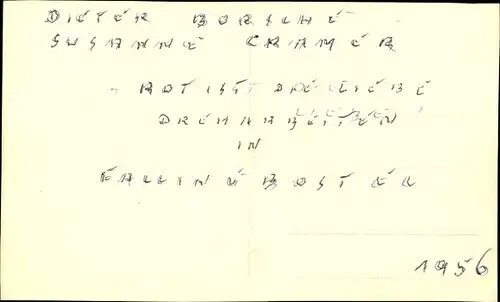 DIETER BORSCHE
SUSANNE CRAMER
- ROT IST DIE LIEBE
DREHARBEITEN
IN
FALLINGBOSTEL
1956